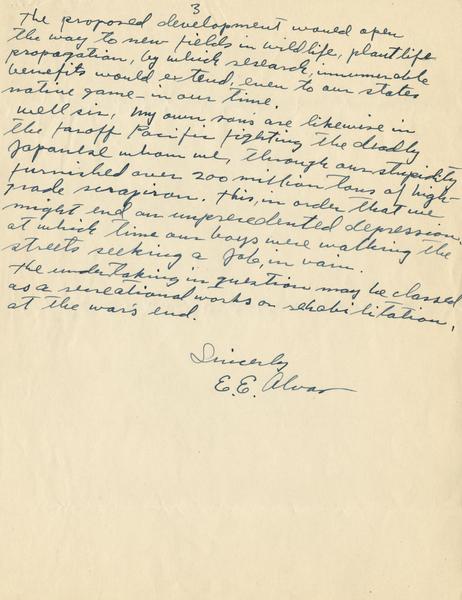 3
The proposed development would open
the way to new fields in wildlife, plantlife
propagation, by which research, innumerable
benefits would extend, even to our states
native game - in our time.
Well sir, my own sons are likewise in
the faroff Pacific fighting the deadly
Japanese whom we, through our stupidity
furnished over 200 million tons of high-
grade scrapiron. This, in order that we
might end an unprecedented depression.
at which time our boys were walking the
streets seeking a job, in vain.
The undertaking in question may be classed
as a recreational works or rehabilitation,
at the war's end.
Sincerly
E.E. Alvas